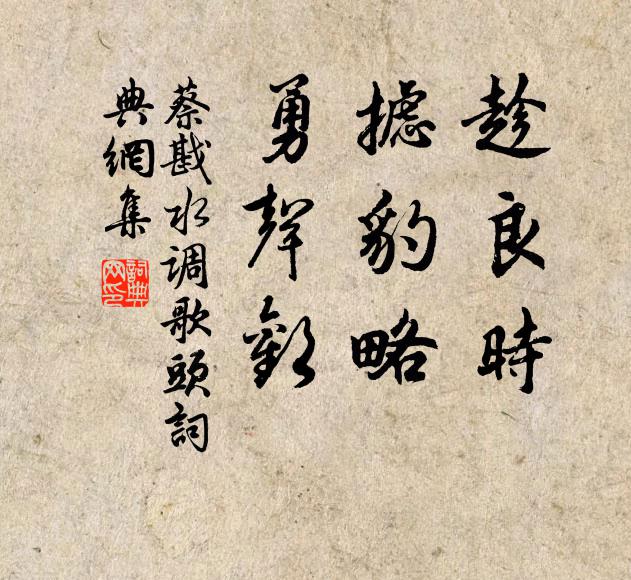 趁良時
攄豹略
勇聲歡
蔡戡水调歌頭詞
典網集
詞典
网印